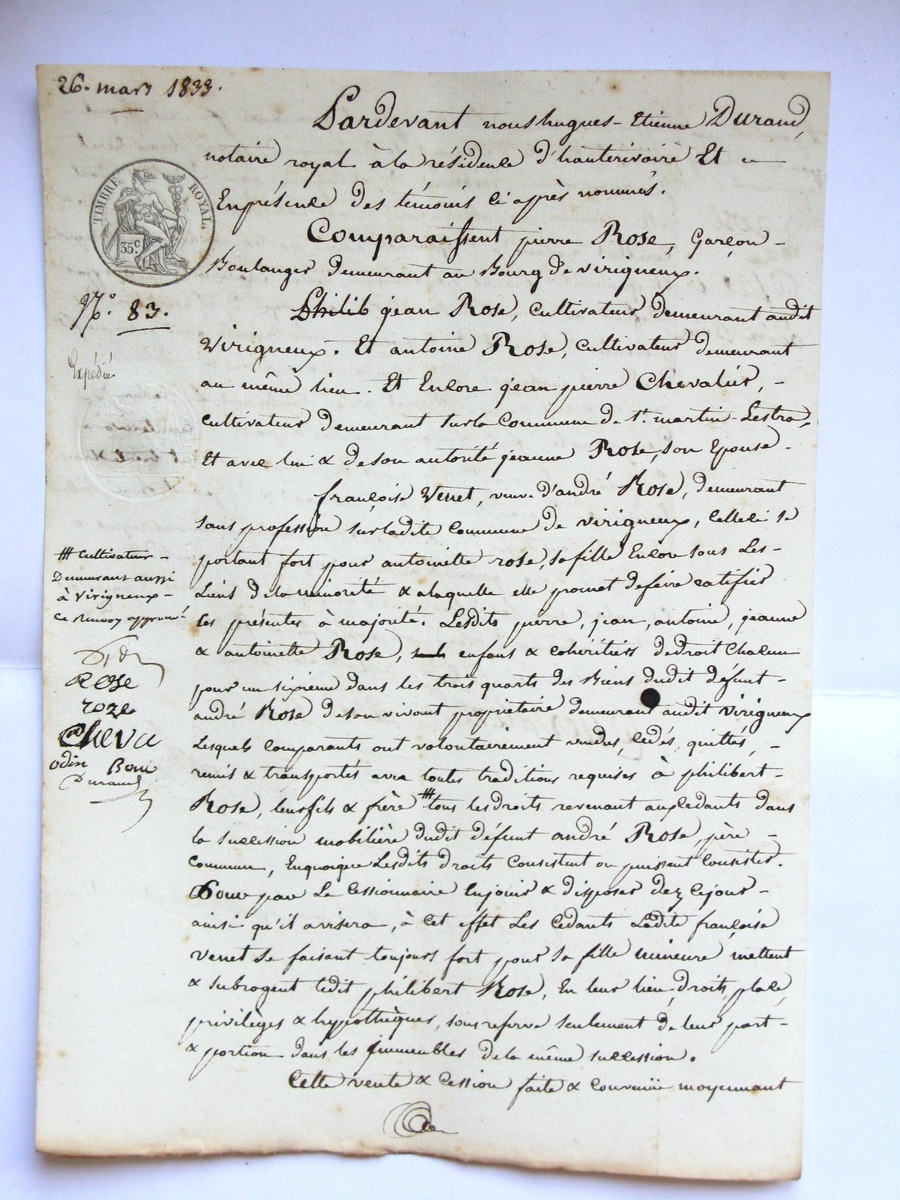 26. mars 1833.
Pardevant nous hugues-Etienne Durand,
notaire royal à la résidence d'hauterivoire Et
En présence des témoins ci après nommés.
TIMBRE ROYAL.
35 c
Comparaissent pierre Rose, Garçon-
Boulanger demeurant au Bourg de virigneux.
N.o 83.
Philib jean Rose, cultivateur demeurant audit
Virigneux. Et antoine Rose, cultivateur demeurant
Expédié
au même lieu. Et Encore jean pierre Chevalier, -
cultivateur demeurant sur la Commune de st. martin-Lestra,
Et avec lui & de son autorité jeanne Rose, son Epouse.
françoise Venet, veuve d'andré Rose, demeurant
sans profession sur ladite Commune de virigneux, celle ci se
portant fort pour antoinette rose, sa fille Encore sous Les-
Liens de la minorité & a laquelle elle promet de faire ratifier
les présentes à majorité. Lesdits pierre, jean, antoine, jeanne
& antoinette Rose, enfans & cohéritiers de droit Chacun
pour un sixième dans les trois quarts des Biens dudit défunt-
andré Rose de son vivant propriétaire demeurant audit virigneux
Lesquels comparants ont volontairement vendus, cédés, quittés, -
remis & transportés avec toutes traditions requises à philibert-
Rose, leur fils & frère # tous les droits revenant aux cédants dans
la succession mobilière dudit défunt andré Rose, père -
Commun, En quoique Lesdits droits Consistent ou puissent Consister.
Pour par Le Cessionnaire En jouir & disposer dez ce jour -
ainsi qu'il avisera, à cet effet Les Cédants Ladite françoise
Venet se faisant toujours fort pour sa fille mineure mettent
& subrogent ledit philibert Rose, En leur lieu, droits, place,
privilèges & hypothèques, sous reserve seulement de leur part-
& portion dans les immeubles de la même succession.
Cette vente & Cession faite & convenüe moyennant
# Cultivateur -
Demeurant aussi
à Virigneux -
ce renvoy approuvé
ROSE
roze
Cheva
odin
Durand